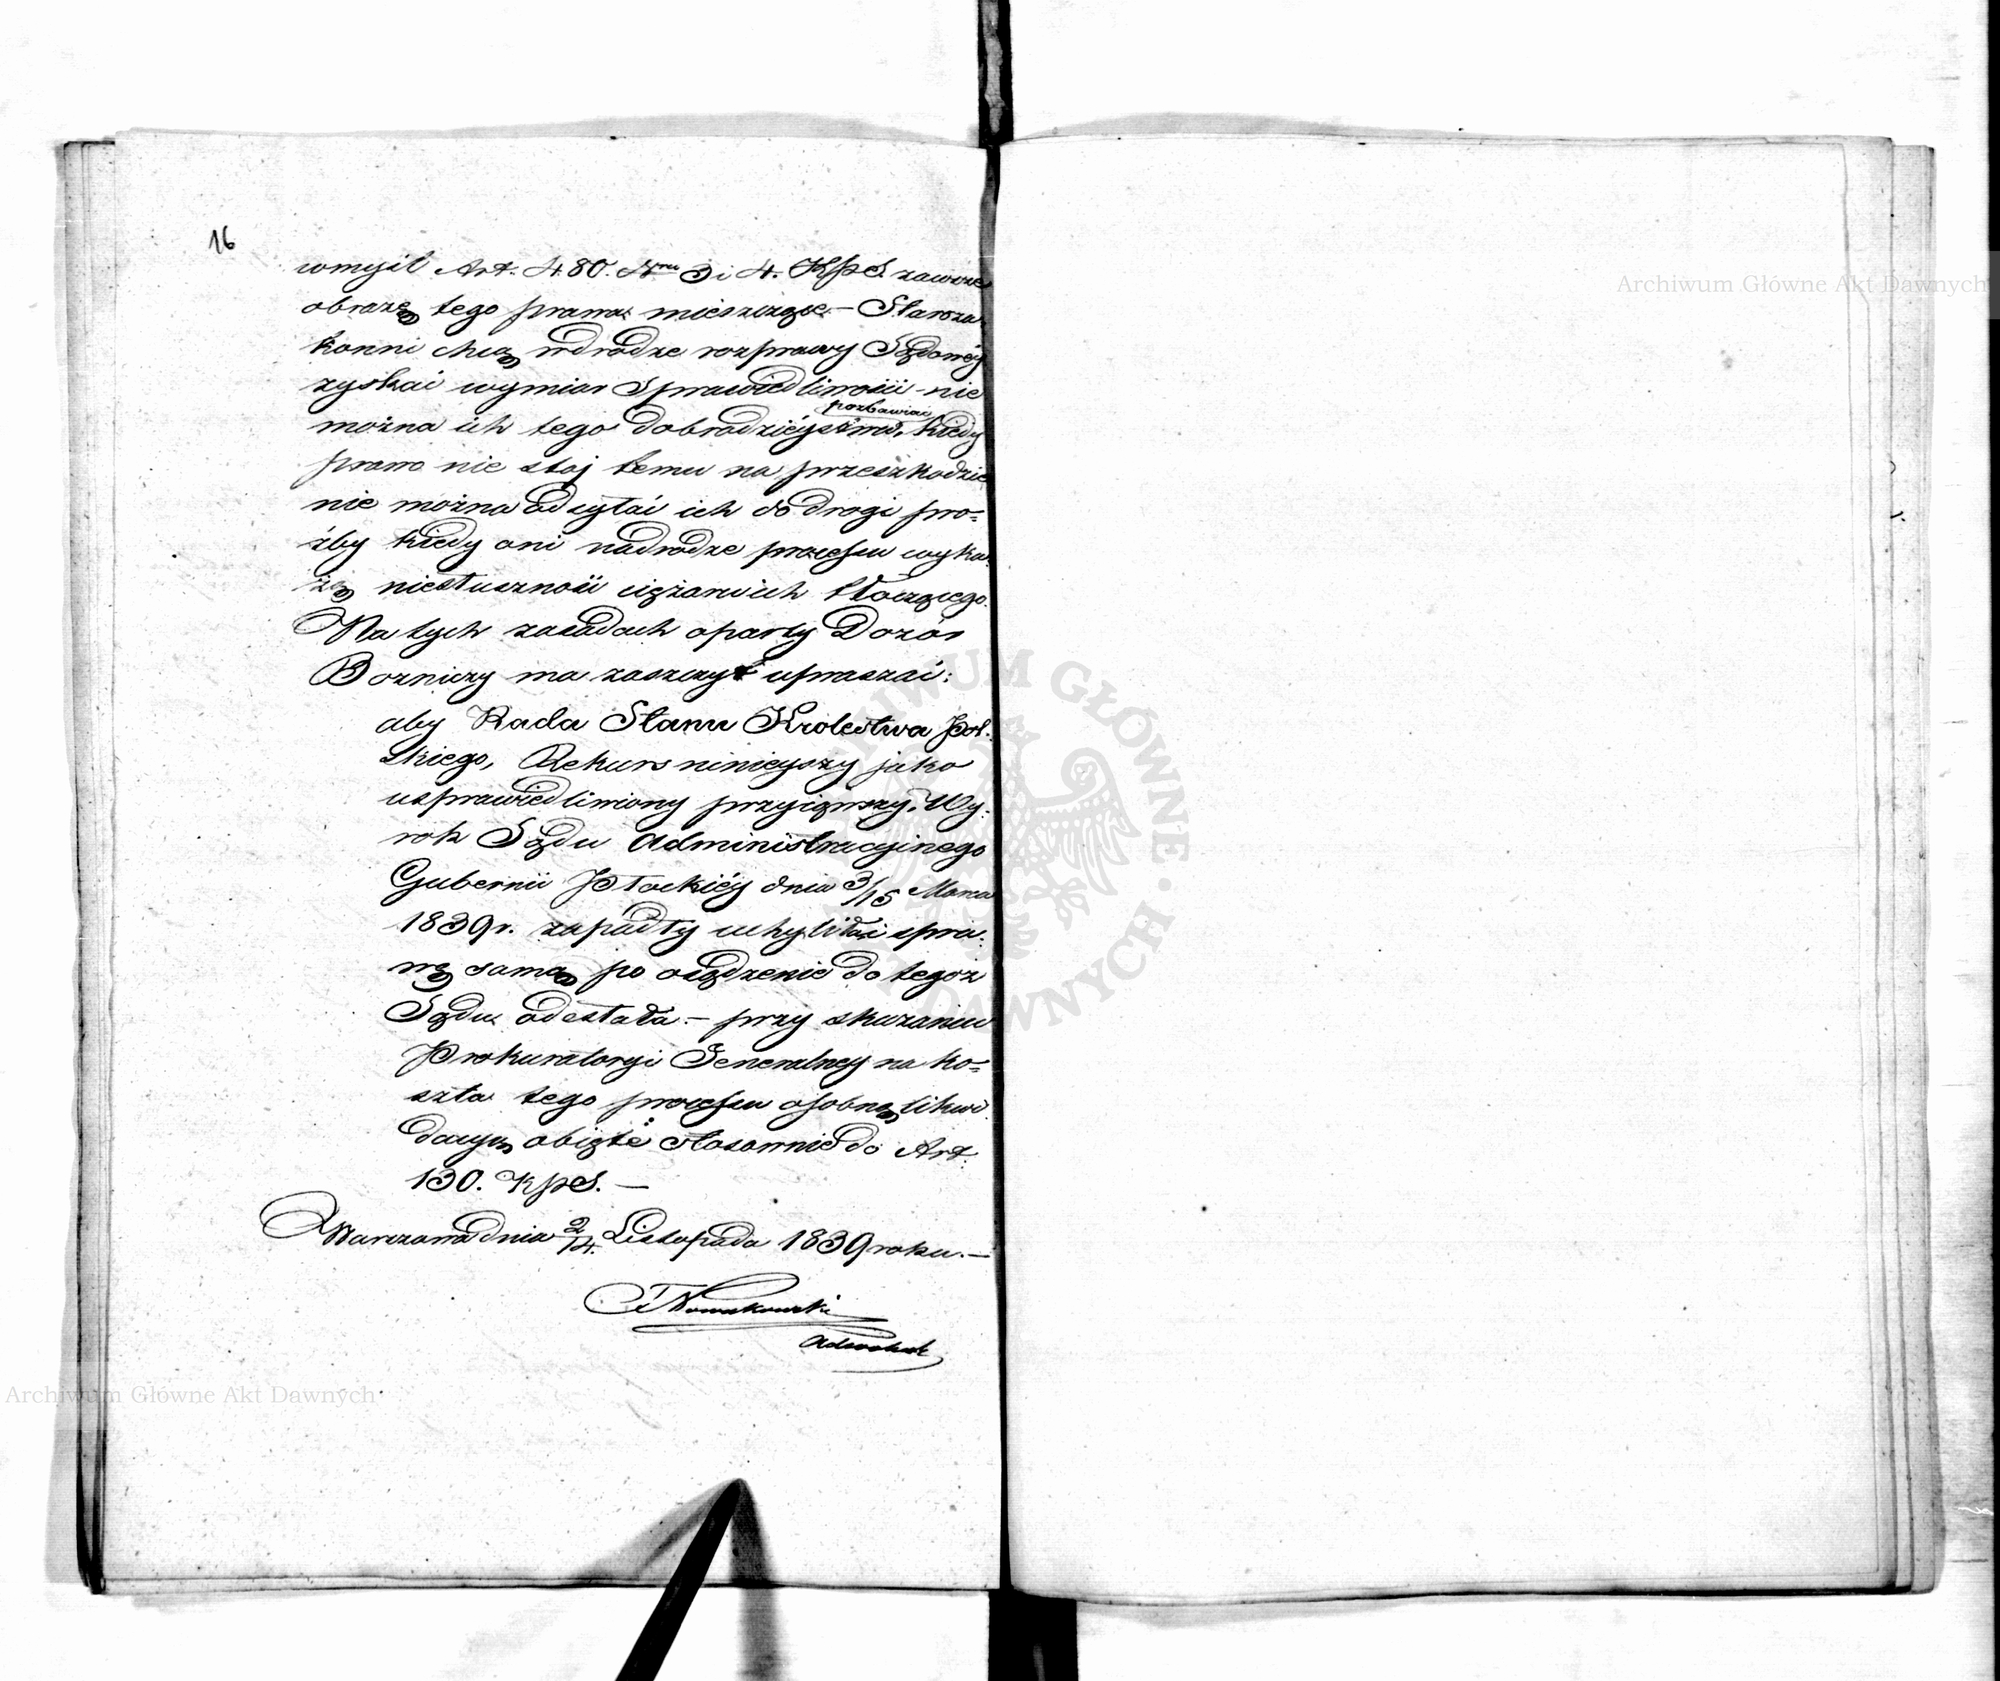 16
wmyśl Art. 480. Nru 3 i 4. KpS. zawsze
obrazę tego prawa mieszczące – Staroza-
konni chcą wdrodze rozprawy Sądowéy
zyskać wymiar Sprawiedliwości – nie
pozbawiać
można ich tego dobrodziéystwa, kiedy
prawo nie stoj temu na przeszkodzie
nie można odsyłać ich do drogi pro=
źby kiedy oni nadrodze processu wyka-
żą niesłuszność ciężaru ich tłoczącego.
Na tych zasadach oparty Dozór
Bozniczy ma zaszczyt upraszać:
aby Rada Stanu Krolestwa Pol-
skiego, Rekurs ninieyszy jako
usprawiedliwiony przyiąwszy, Wy-
rok Sądu Administracyinego
Gubernii Płockiéy dnia 3/15 Marca
1839 r. zapadły uchyliła i spra-
wę samą po osądzenie do tegoż
Sądu odesłała – przy skazaniu
Prokuratoryi Generalney na ko=
szta tego processu osobną likwi-
dacyą obięte stosownie do Art.
130. KpS. –
Warszawa dnia 2/14 Listopada 1839 roku. –
T Nowakowski
Adwokat
Archiwum Główne Akt Dawnych
Archiwum Główne Akt Dawnych
ARCHIWUM GŁÓWNE AKT DAWNYCH